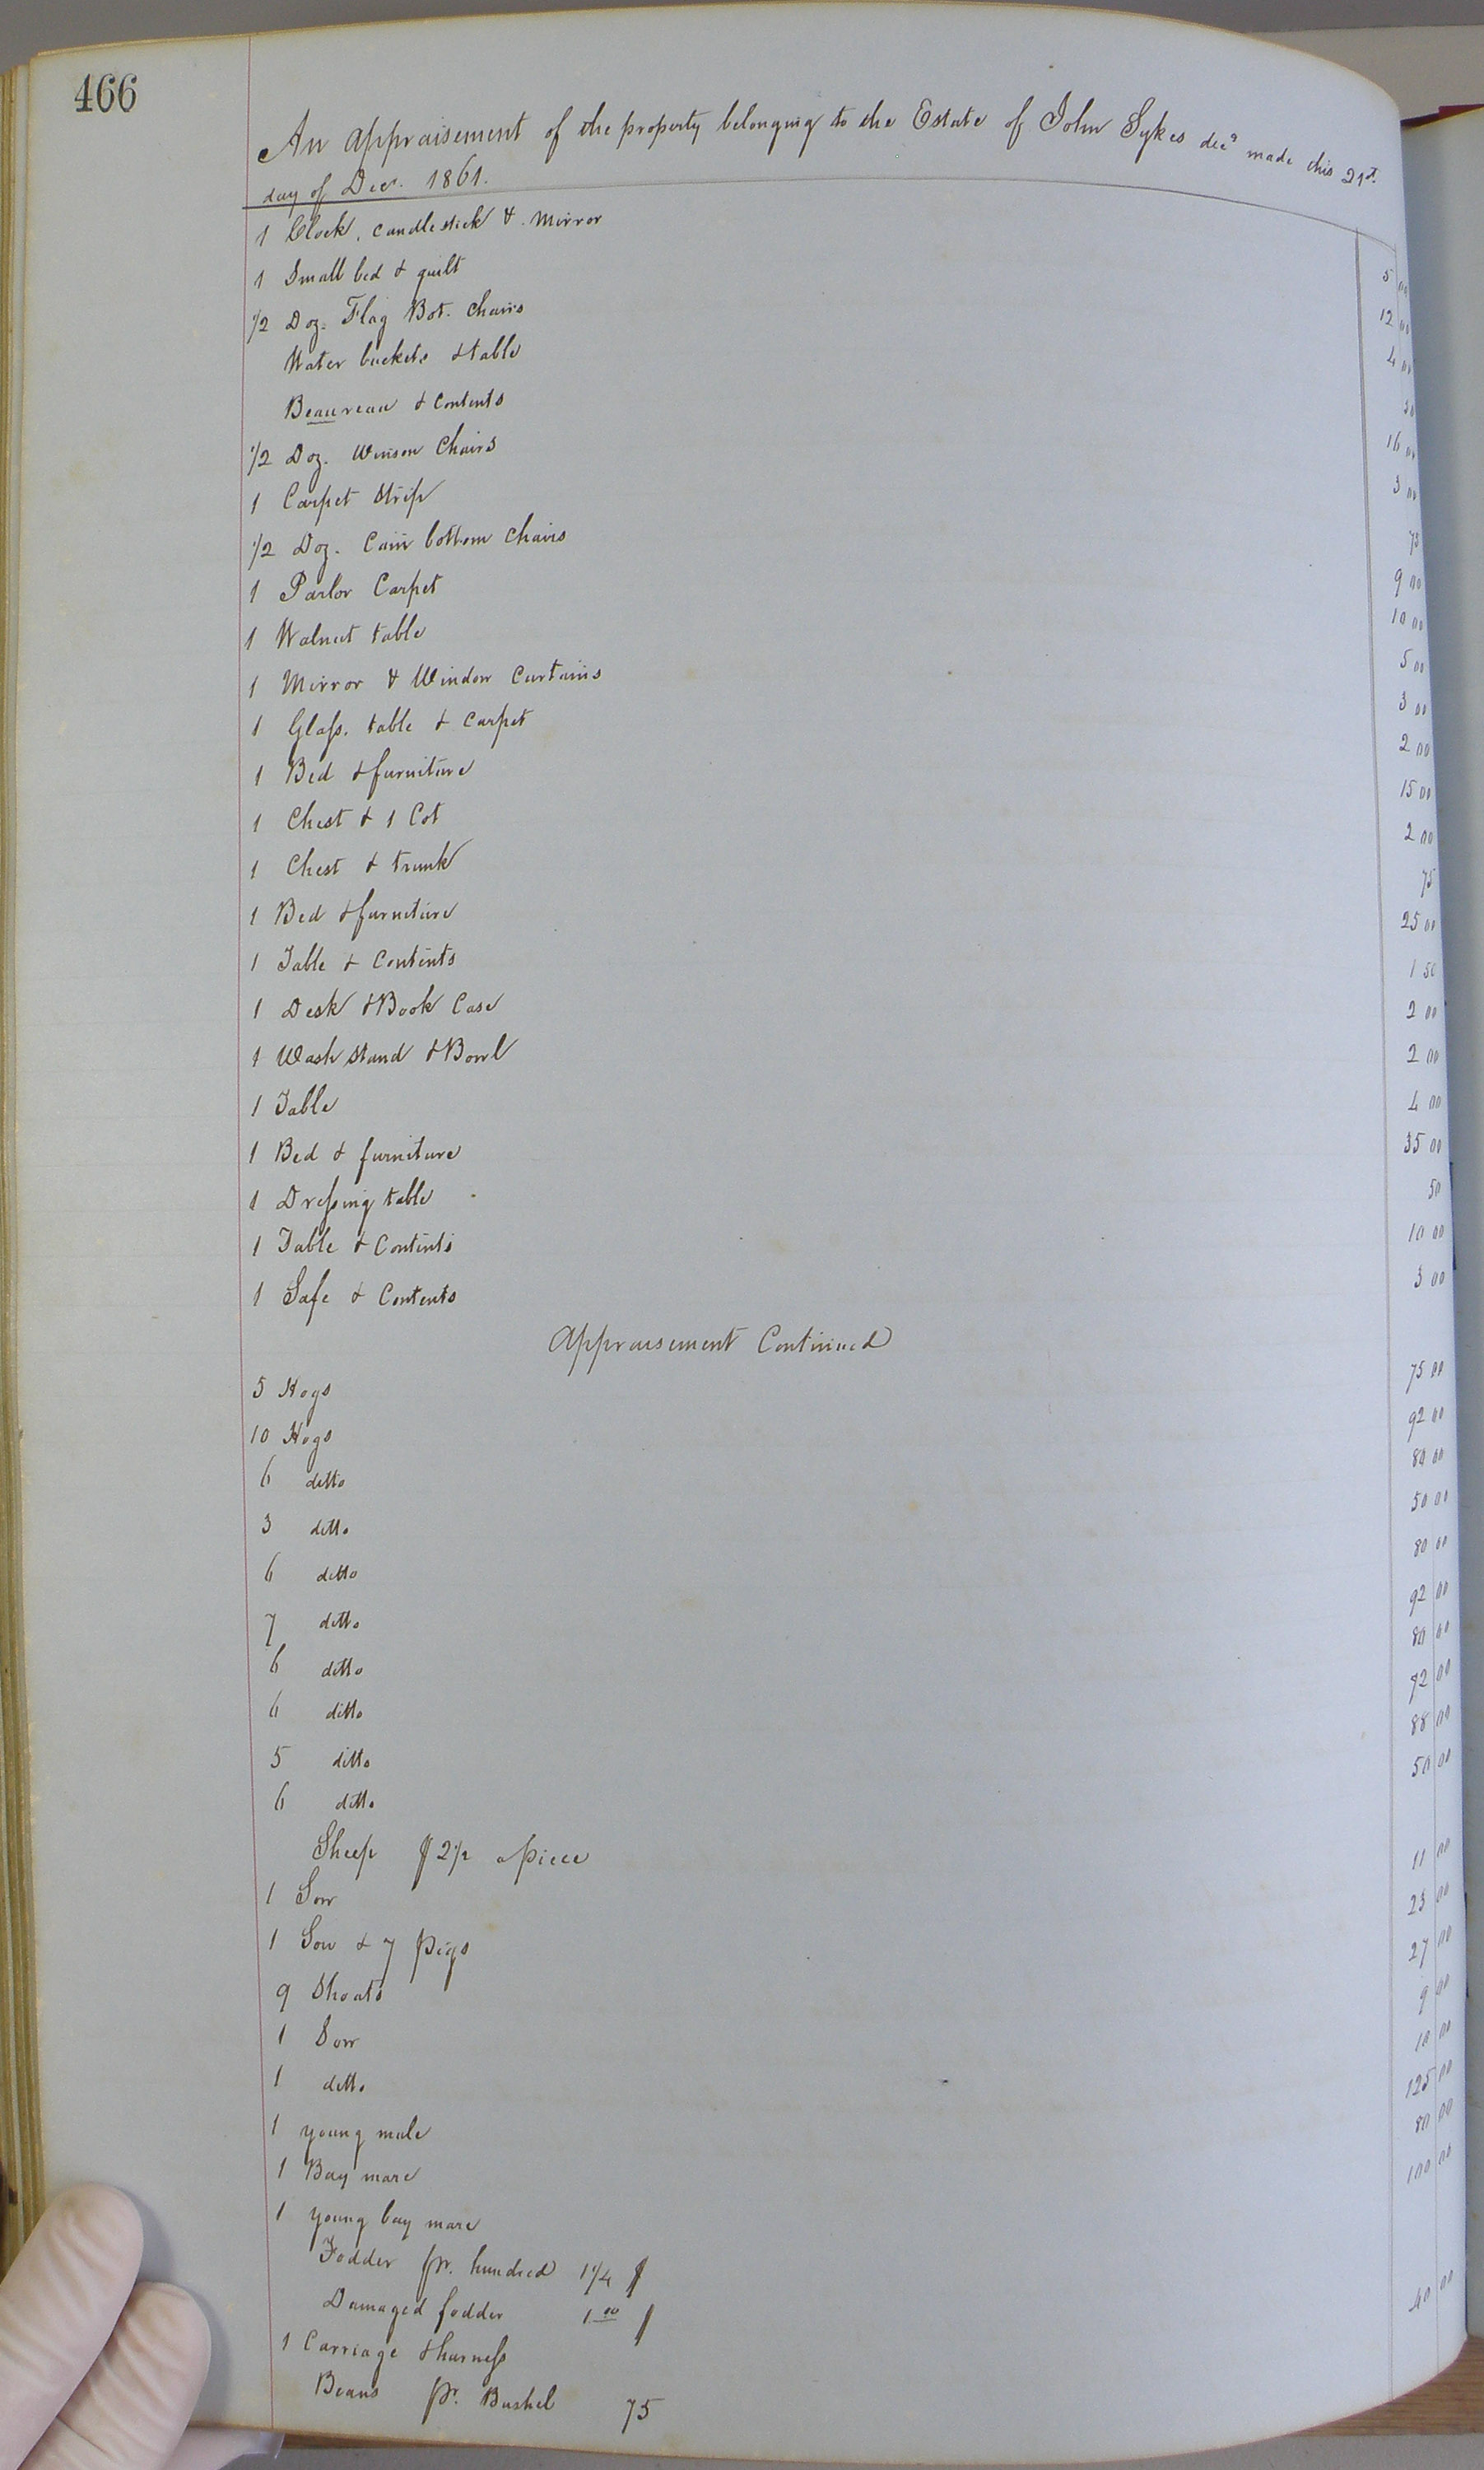 466
An appraisement of the property belonging to the Estate of John Sykes decd made this 21st
day of Decr. 1861.
1 Clock, candlestick & Mirror 5 00
1 Small bed & quilt 12 00
1/2 Doz. Flag Bot. chairs 4 00
Water buckets & table 50
Beaureau & Contents 16 00
1/2 Doz. Winson Chairs 3 00
1 Carpet Strip 75
1/2 Doz. Cain bottom Chairs 9 00
1 Parlor Carpet 10 00
1 Walnut table 5 00
1 Mirror & Window Curtains 3 00
1 Glass. table & Carpet 2 00
1 Bed & furniture 15 00
1 Chest & 1 Cot 2 00
1 Chest & trunk 75
1 Bed & furniture 25 00
1 Table & Contents 1 50
1 Desk & Book Case 2 00
1 Wash stand & Bowl 2 00
1 Table 4 00
1 Bed & furniture 35 00
1 Dressing table 50
1 Table & Contents 10 00
1 Safe & Contents 3 00
Appraisement Continued
5 Hogs 75 00
10 Hogs 92 00
6 ditto 80 00
3 ditto 50 00
6 ditto 80 00
7 ditto 92 00
6 ditto 80 00
6 ditto 92 00
5 ditto 88 00
6 ditto 50 00
Sheep $ 2 1/2 apiece
1 Sow 11 00
1 Sow & 7 pigs 23 00
9 Shoats 27 00
1 Sow 9 00
1 ditto 10 00
1 young mule 125 00
1 Bay mare 80 00
1 young bay mare 100 00
Fodder pr. hundred 1 1/4 $
Damaged fodder 1.00 $
1 Carriage & harness 40 00
Beans pr. Bushel 75